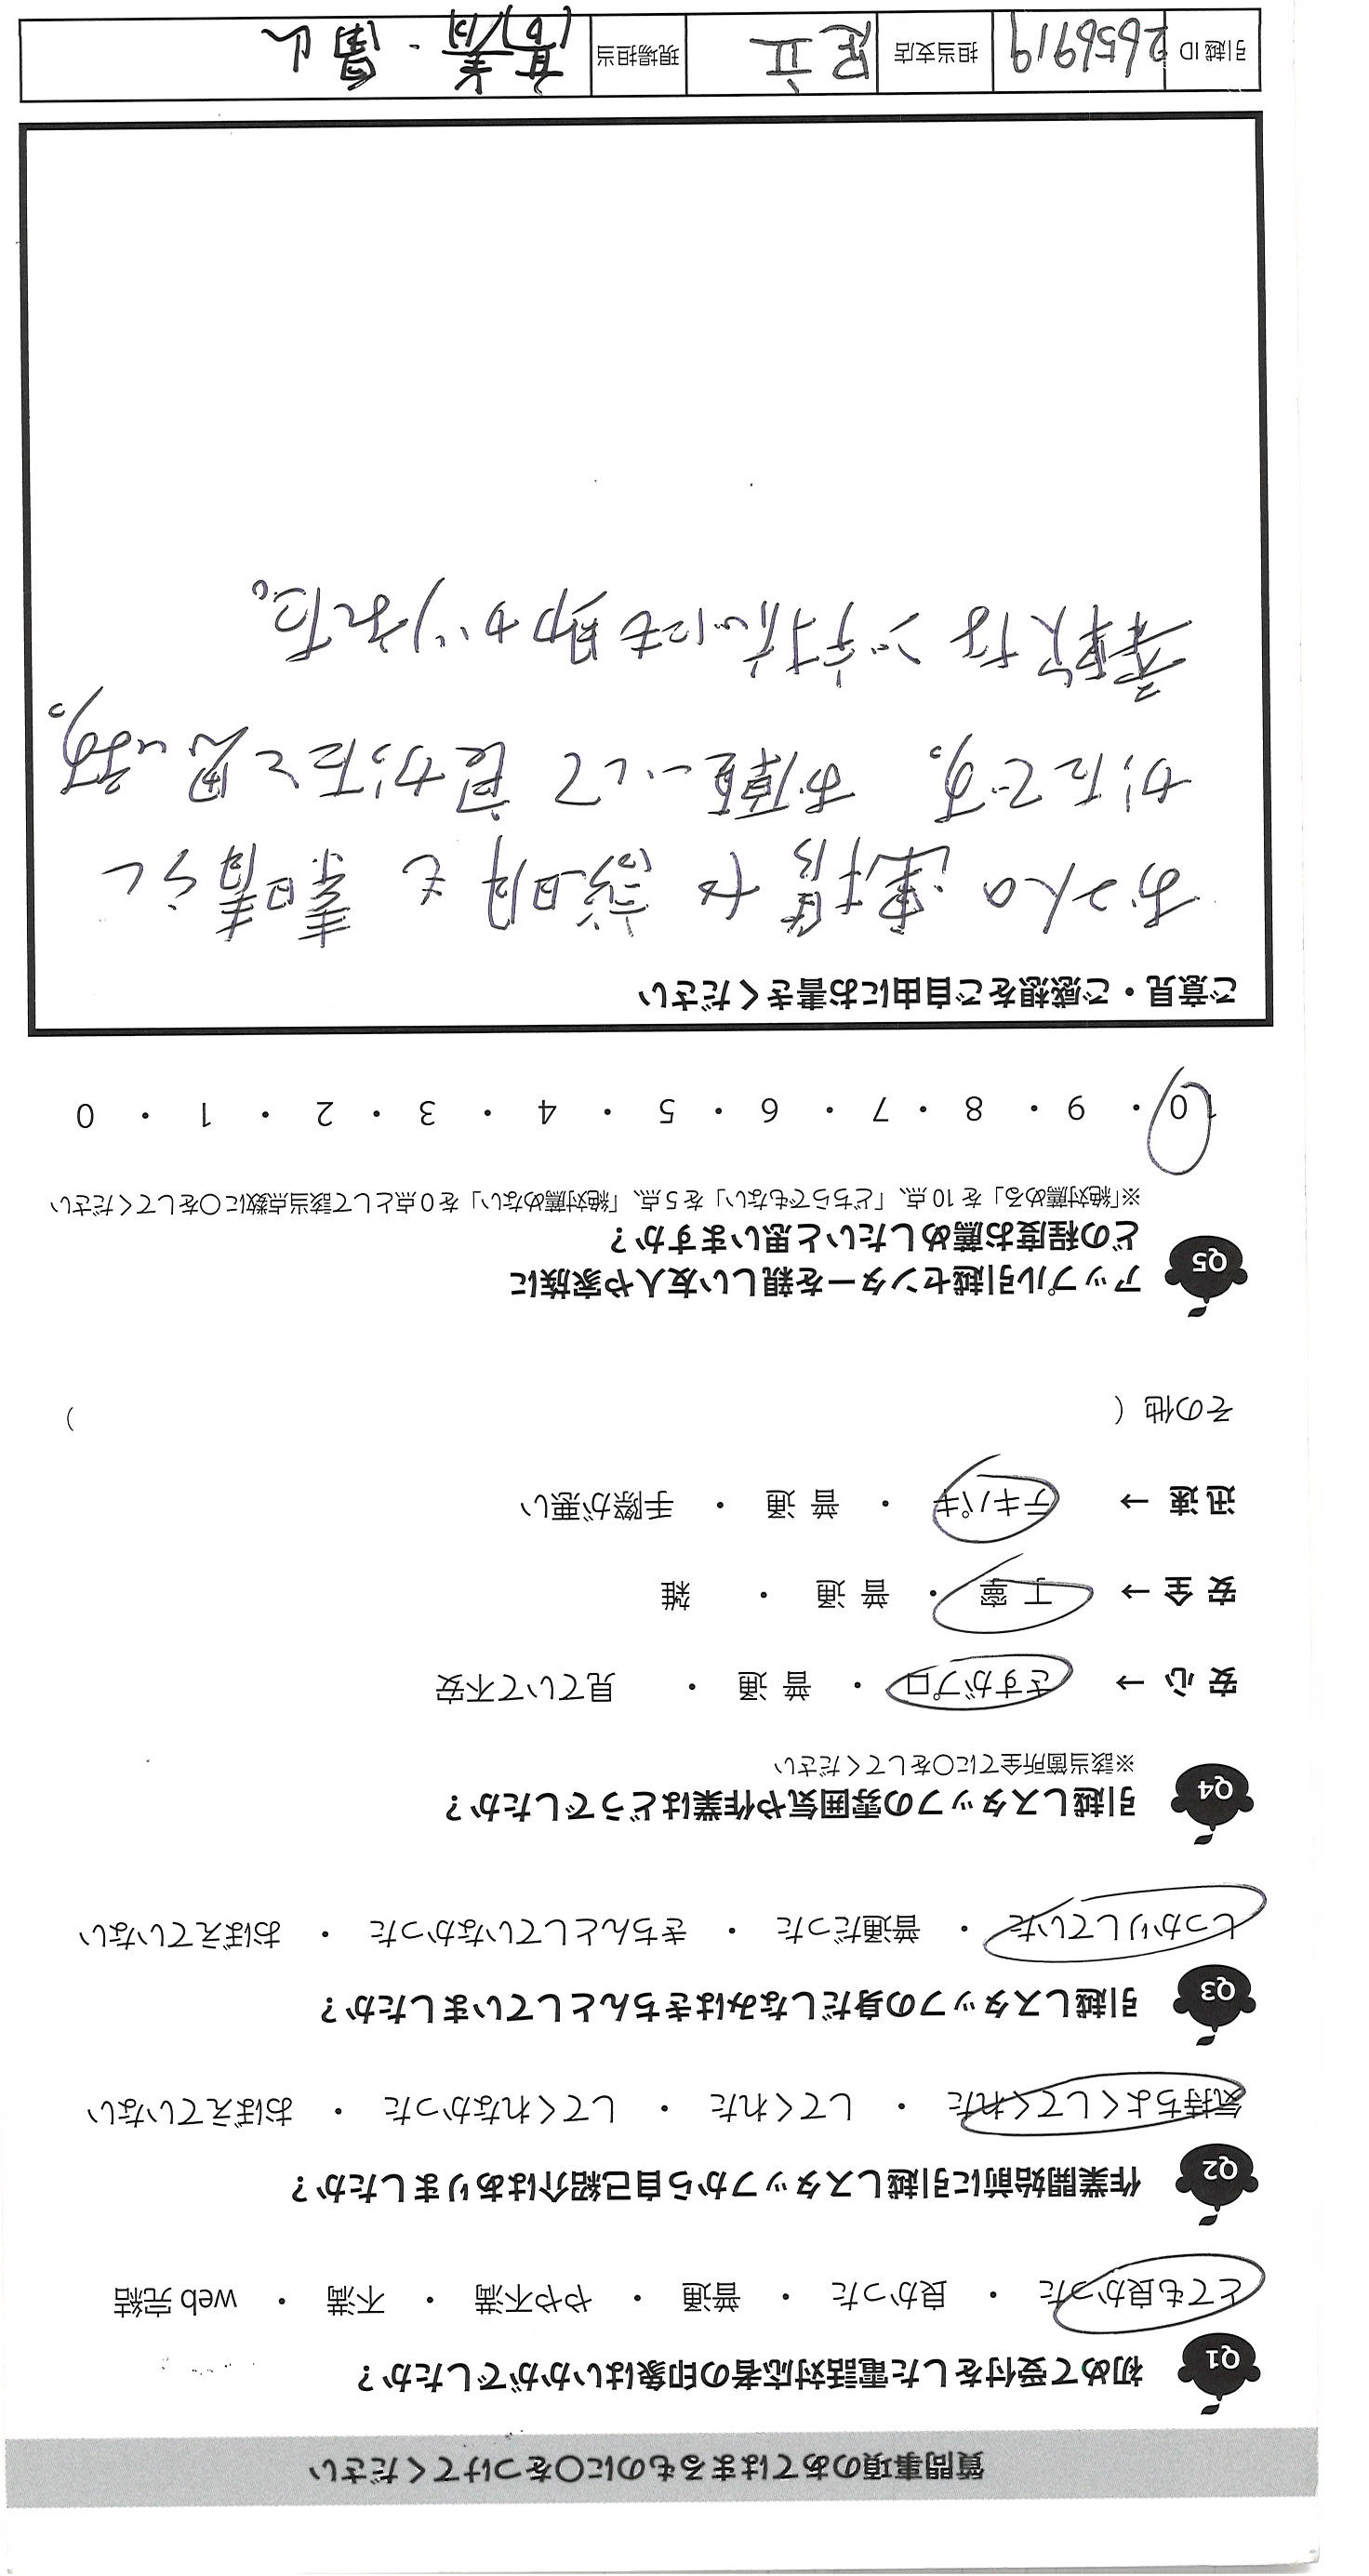 質問事項のあてはまるものに〇をつけてください
Q1 初めて受付をした電話対応者の印象はいかがでしたか？
とても良かった ・ 良かった ・ 普通 ・ やや不満 ・ 不満 ・ web 完結
Q2 作業開始前に引越しスタッフから自己紹介はありましたか？
気持ちよくしてくれた ・ してくれた ・ してくれなかった ・ おぼえていない
Q3 引越しスタッフの身だしなみはきちんとしていましたか？
しっかりしていた ・ 普通だった ・ きちんとしていなかった ・ おぼえていない
Q4 引越しスタッフの雰囲気や作業はどうでしたか？
※該当箇所全てに〇をしてください
安心 → さすがプロ ・ 普通 ・ 見ていて不安
安全 → 丁寧 ・ 普通 ・ 雑
迅速 → テキパキ ・ 普通 ・ 手際が悪い
その他（ ）
Q5 アップル引越センターを親しい友人や家族に
どの程度お薦めしたいと思いますか？
※「絶対薦める」を 10 点、「どちらでもない」を 5 点、「絶対薦めない」を 0 点として該当点数に〇をしてください
10 ・ 9 ・ 8 ・ 7 ・ 6 ・ 5 ・ 4 ・ 3 ・ 2 ・ 1 ・ 0
ご意見・ご感想をご自由にお書きください
お二人の連携や説明も素晴らし
かったです。お願いして良かったと思います。
柔軟なご対応にも助かりました。
引越 ID 2656919 担当支店 足立 現場担当